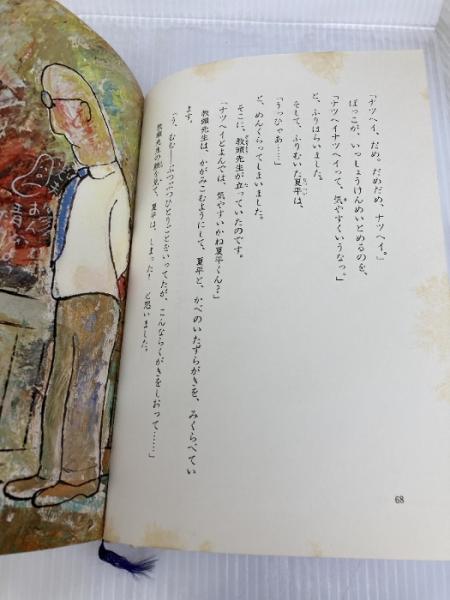 「ナツヘイ、だめ。だめだめ、ナツヘイ。」
ばっこが、いっしょうけんめいとめるのを、
「ナツヘイナツヘイって、気やすくいうなっ。」
と、ふりはらいました。
そして、ふりむいた夏平は、
「うっひゃあ……。」
と、めんくらってしまいました。
そこに、教頭先生が立っていたのです。
「ナツヘイとよんでは、気やすいかね夏平くん？」
教頭先生は、かがみこむようにして、夏平と、かべのいたずらがきを、みくらべてい
ます。
（う、むむ――ぶつぶつひとりごとをいってたが、こんならくがきをしおって……。」
教頭先生の顔を見て、夏平は、しまった！　と思いました。
68